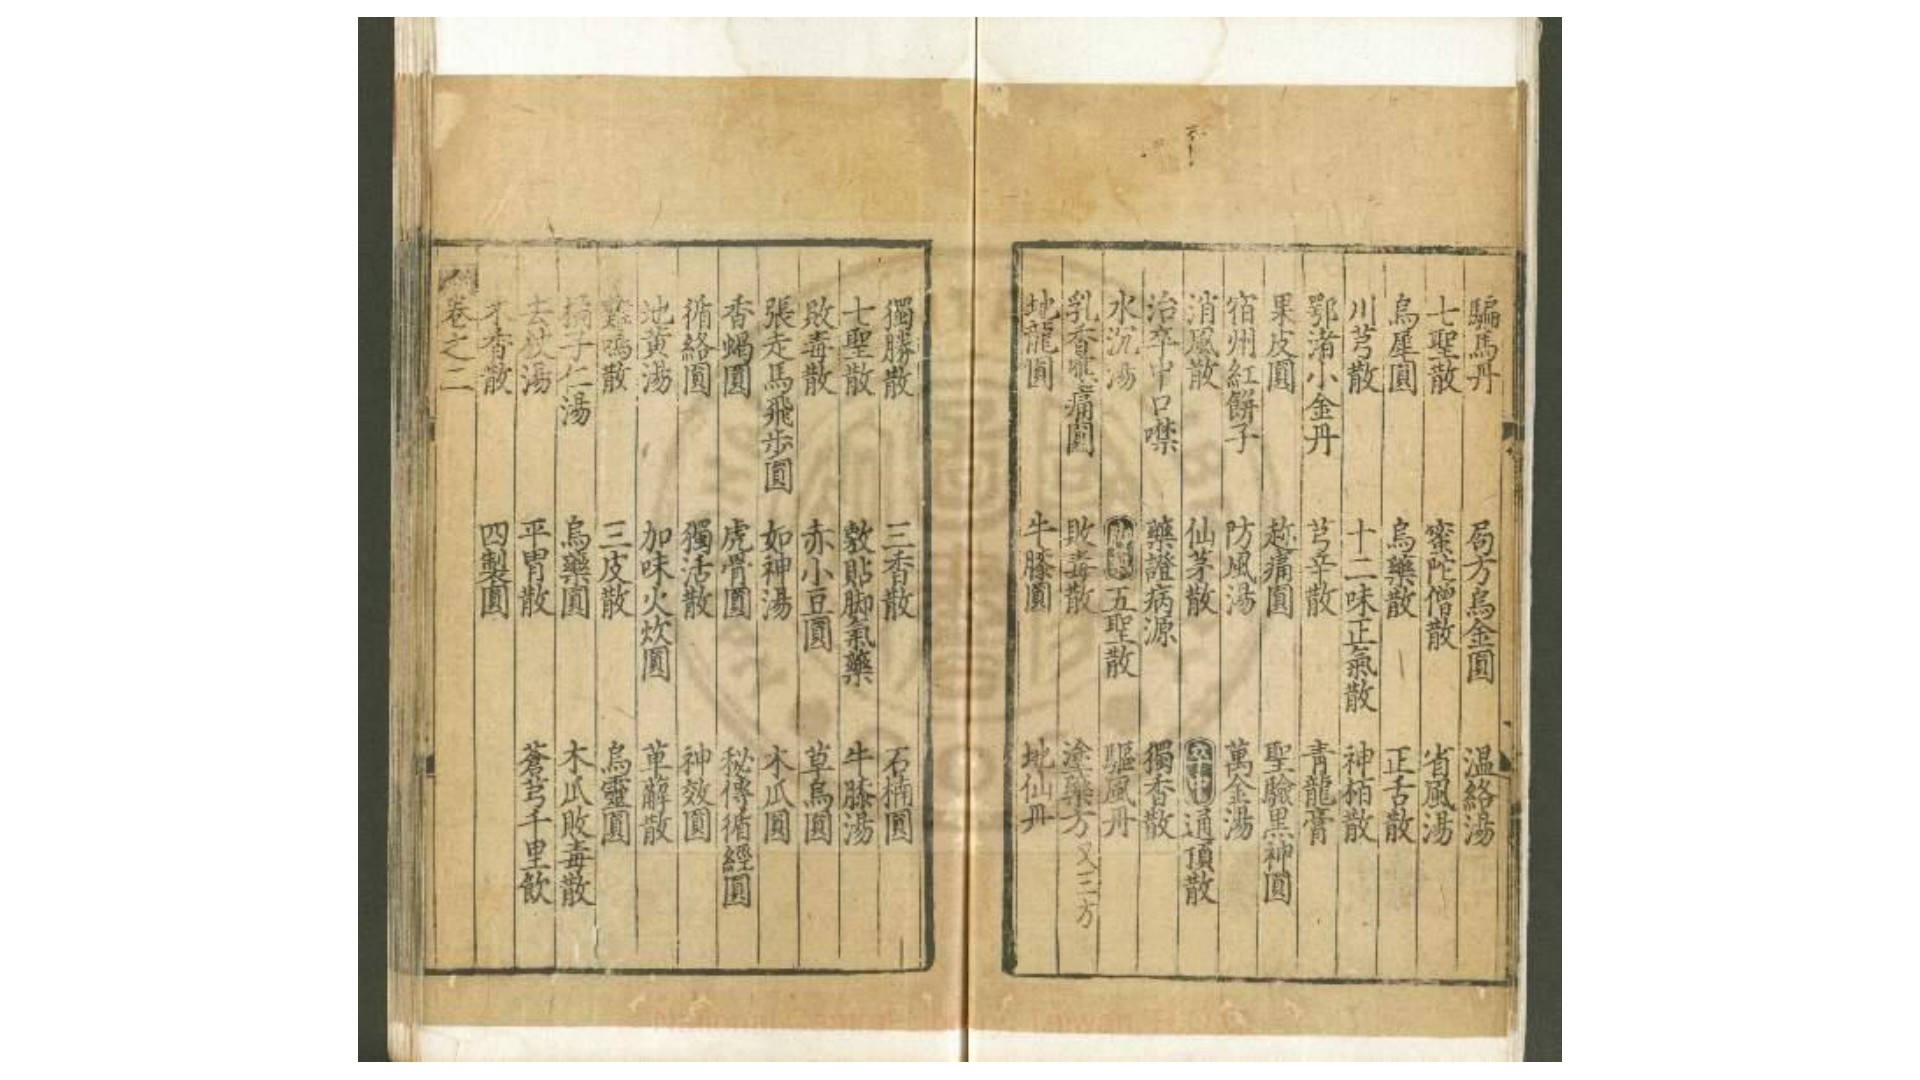 騙馬丹 局方烏金圓 温絡湯
七聖散 蜜陀僧散 省風湯
烏犀圓 烏藥散 正舌散
川芎散 十二味正氣散 神栢散
鄂渚小金丹 芎辛散 青龍膏
果皮圓 趂痛圓 聖驗黒神圓
宿州紅餅子 防風湯 萬金湯
消風散 仙茅散 卒中 通頂散
治卒中口噤 藥證病源 獨香散
水沉湯 五聖散 驅風丹
乳香 痛圓 敗毒散 塗藥方 又三方
地龍圓 牛膝圓 地仙丹
獨勝散 三香散 石楠圓
七聖散 敷貼脚氣藥 牛膝湯
敗毒散 赤小豆圓 草烏圓
張走馬飛步圓 如神湯 木瓜圓
香蝎圓 虎骨圓 秘傳循經圓
循絡圓 獨活散 神效圓
地黄湯 加味火炊圓 萆薢散
鷄鳴散 三皮散 烏靈圓
橘子仁湯 烏藥圓 木瓜敗毒散
去杖湯 平胃散 蒼芎千里飲
木香散 四製圓
卷之二